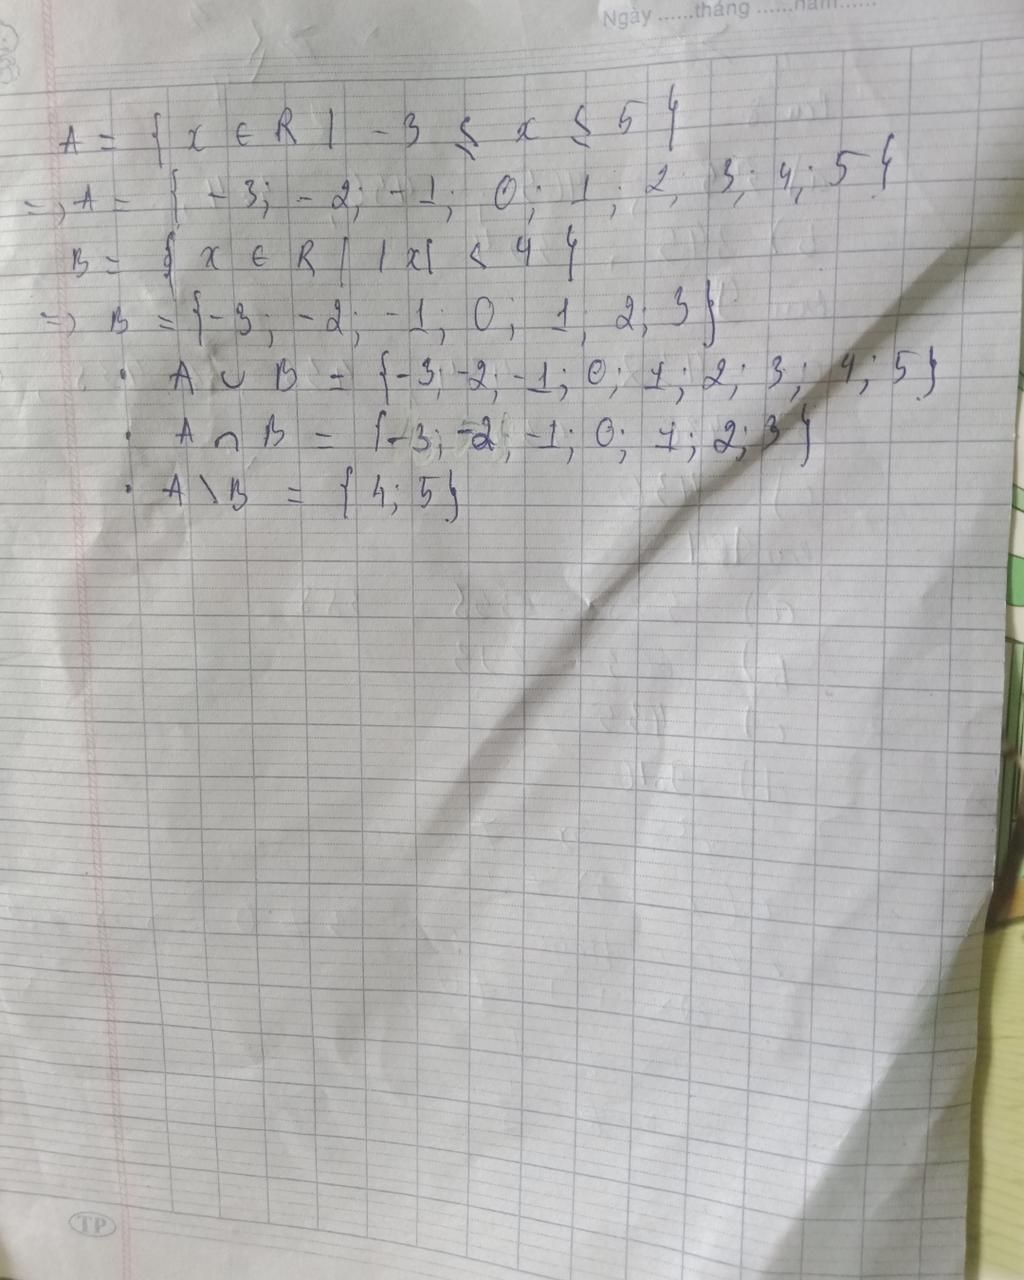 Ngày ......tháng ......năm......
A = { x ∈ R | -3 ≤ x ≤ 5 }
=> A = { -3; -2; -1; 0; 1; 2; 3; 4; 5 }
B = { x ∈ R | |x| < 4 }
=> B = {-3; -2; -1; 0; 1; 2; 3}
• A ∪ B = {-3; -2; -1; 0; 1; 2; 3; 4; 5}
• A ∩ B = {-3; -2; -1; 0; 1; 2; 3}
• A \ B = {4; 5}
TP